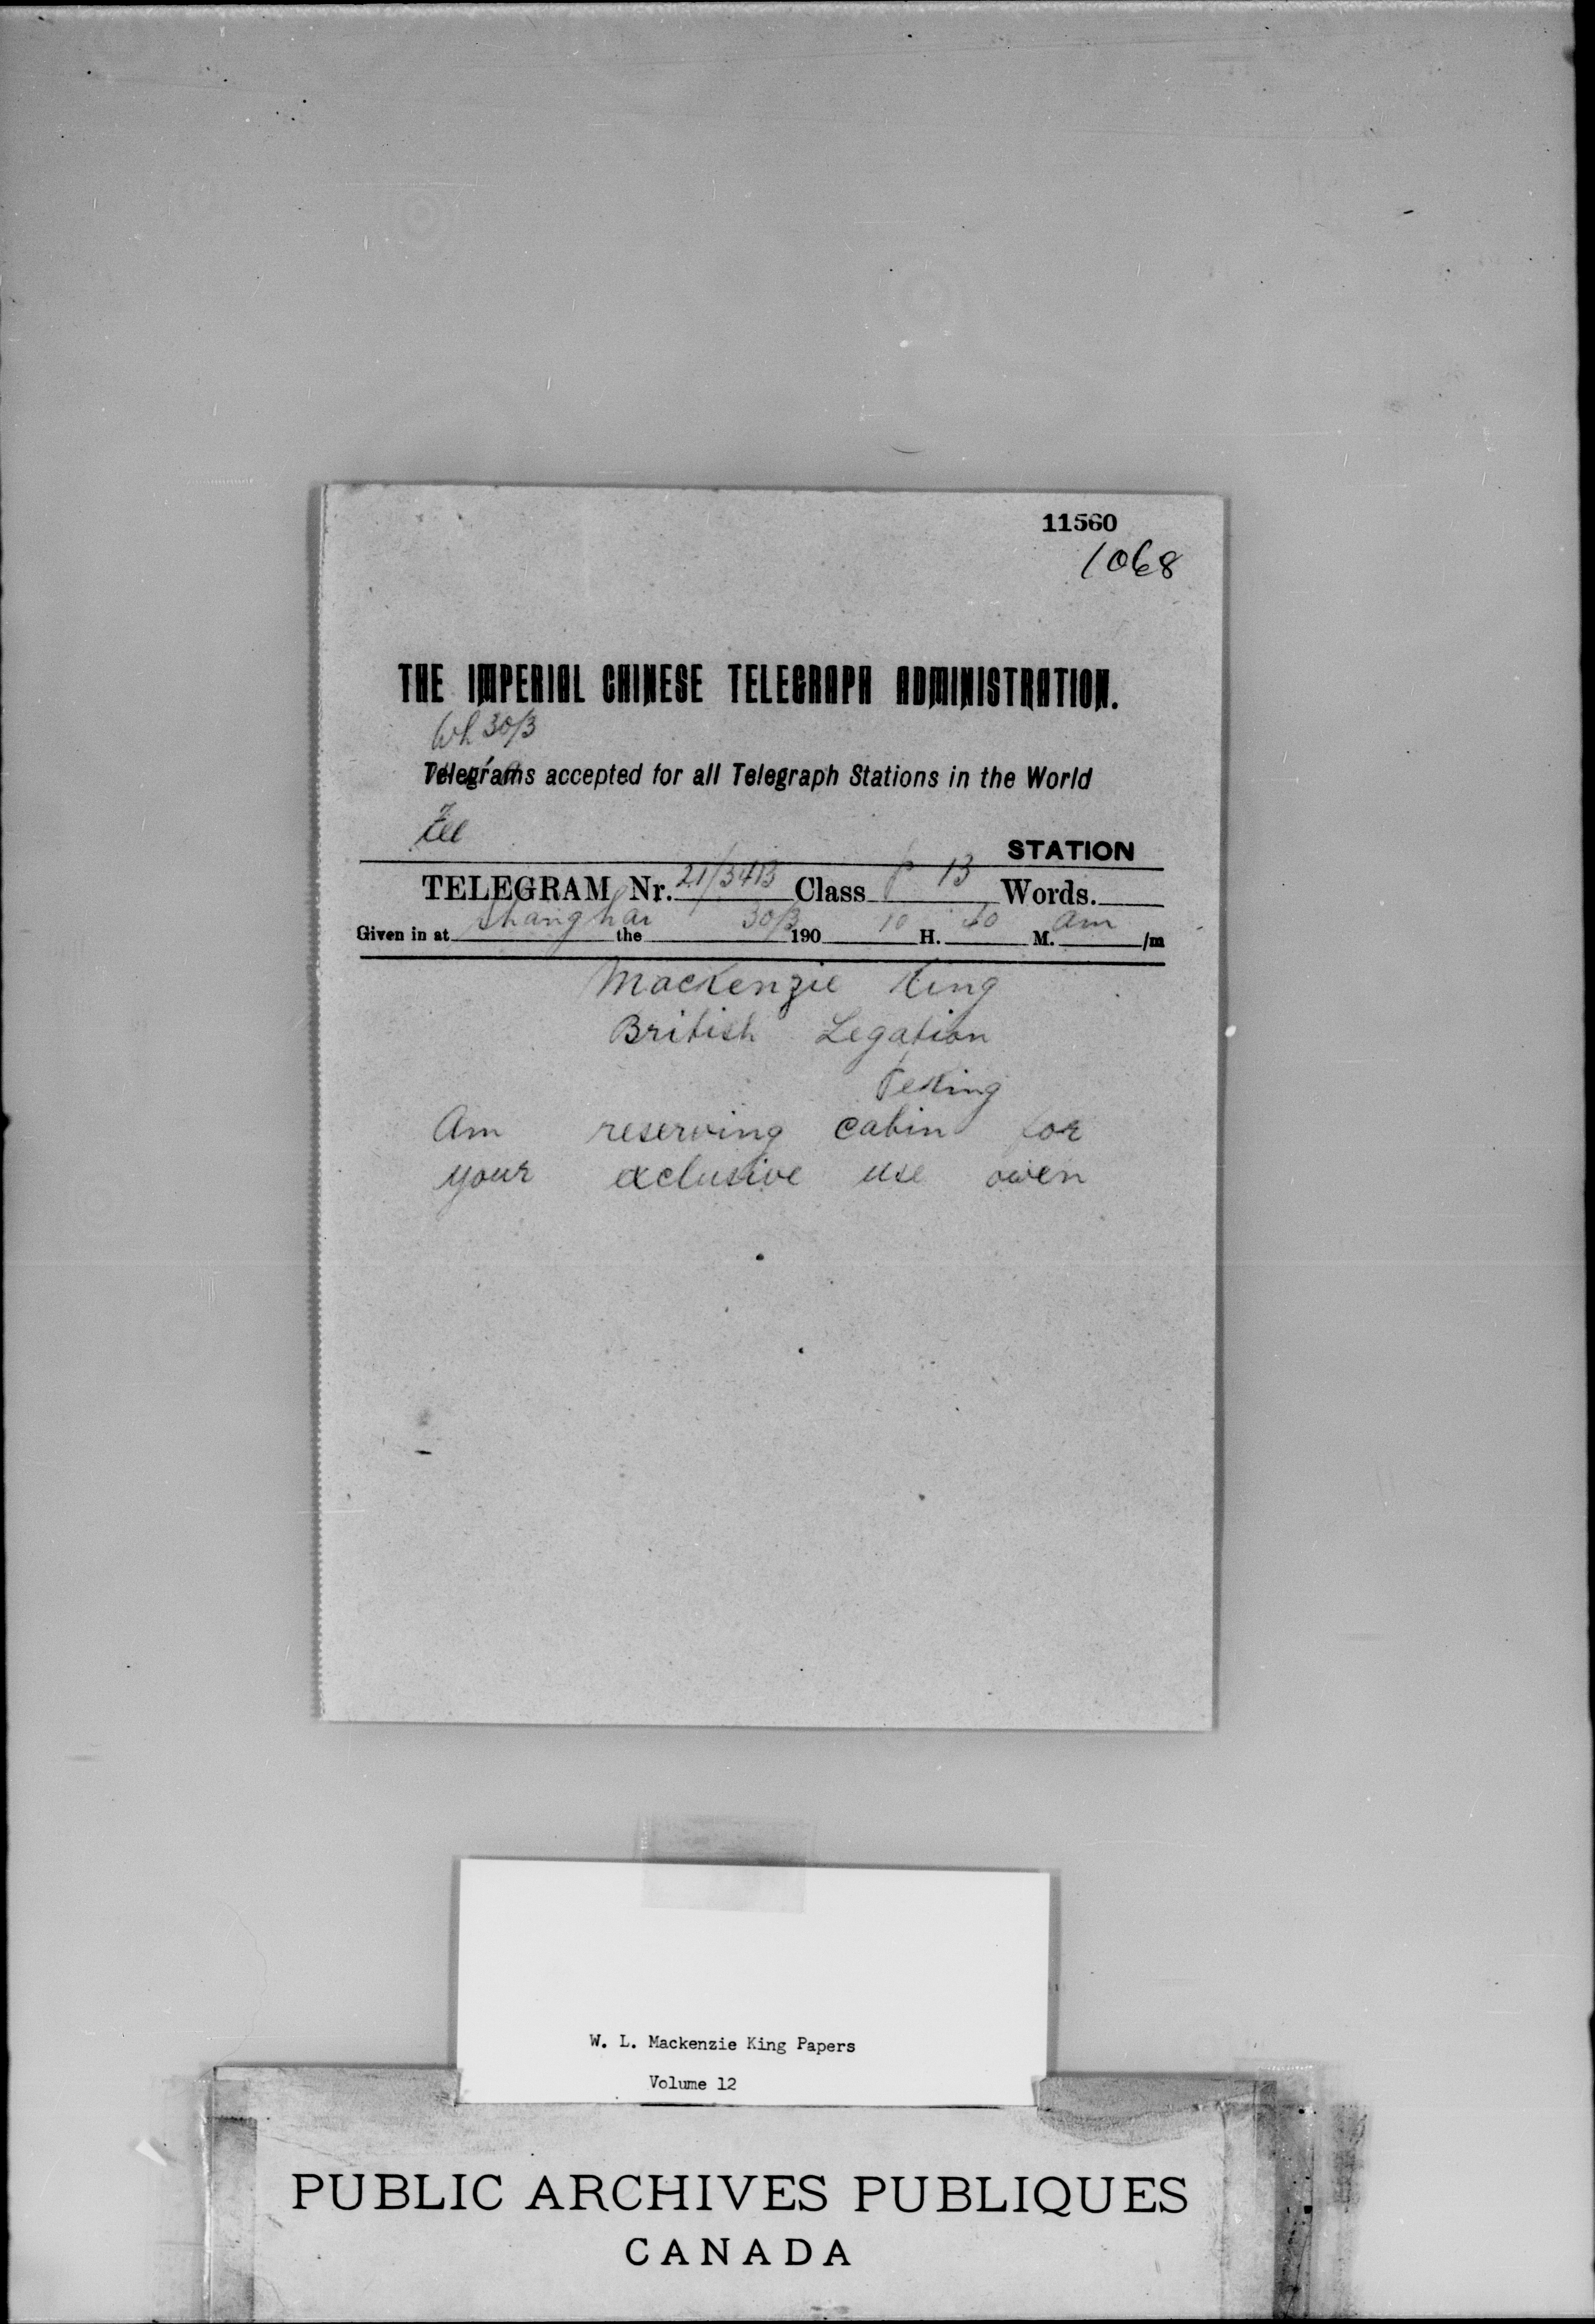 11560
1068
THE IMPERIAL CHINESE TELEGRAPH ADMINISTRATION.
Wh 30/3
Telegrams accepted for all Telegraph Stations in the World
STATION
TELEGRAM Nr. 21/3413 Class P 13 Words.
Given in at Shanghai the 30/3 190 10 H. 40 M. am /m
Mackenzie King
British Legation
Peking
Am reserving cabin for
your exclusive use owen
W. L. Mackenzie King Papers
Volume 12
PUBLIC ARCHIVES PUBLIQUES
CANADA